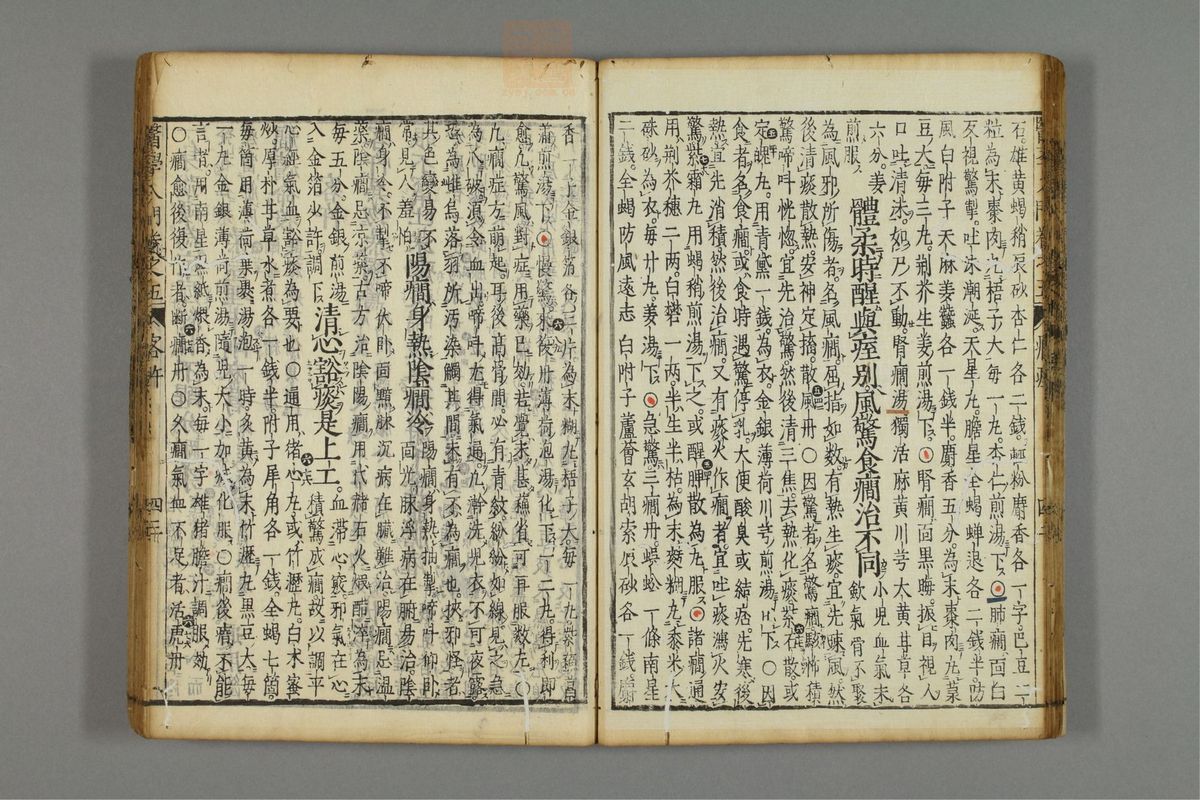 石。雄黃蝎稍辰砂杏仁各二錢。輕粉麝香各一字巴豆二
粒為末。棗肉丸梧子大每一丸。杏仁煎湯下。肺癇面白
反視驚掣。吐沫潮涎。天星丸。膽星全蝎蟬退各二錢半。防
風白附子天麻姜蠶各一錢半。麝香五分。為末。棗肉丸菉
豆大每三丸。荊芥生姜煎湯下。腎癇面黑晦振目視人
口吐清沫。如尸不動。腎癇湯獨活麻黃川芎大黃甘草各
六分。姜煎服。
體柔時醒與痓別。風驚食癇治不同
小兒血氣未歛氣骨不聚
為風邪所傷者名風癇屈指如数有熱生痰。宜先疎風。然
後清痰散熱。安神定搐散風丹因驚者名驚癇驚
驚啼叫恍惚。宜先治驚。然後清三焦。去熱化痰紫不散。或
定魄丸。用青黛一錢。為衣。金銀薄荷川芎煎湯下。〇因
食者名食癇。或食時遇驚停乳。大便酸臭或結痞。先寒後
熱宜先消積。然後治癇。又有痰火作癇者。宜吐痰瀉火安
驚紫霜丸用蝎稍煎湯下之。或醒脾散為丸服。諸癇通
用荆芥穗二兩。白礬一兩。半生半枯。為末。麪糊丸。黍米大
硃砂為衣。每廿丸。姜湯下。急驚三癇丹蜈蚣一條南星
二錢。全蝎防風遠志白附子蘆薈玄胡索辰砂各一錢麝
香一字金銀箔各三片為末。糊丸梧子大每一丸。
薄煎湯下。慢驚氷後片薄荷泡湯化下一二丸。得利即
愈。凡驚風。對症用藥已効。若覺未甚蘇省。可再服数丸。〇
凡癇症方萌起。耳後高骨間。必有青紋紛紛如線。見之急
為爪破。須令血出。啼叫尤得氣通。凡澣洗兒衣。不可夜露
恐為雌鳥落羽所汚染觸其間未有不為癇也。挾邪怪者
其色變易不常。見人羞怕
陽癇身熱陰癇冷
陽癇身熱抽掣啼叫仰卧
面光脉浮病在腑易治。陰癇身冷。不掣。不啼伏卧面黯脉沉病在臟難治。陽癇忌温
藥。陰癇忌凉藥。古方治陰陽癇。用代赭石火煅醋淬為末
每五分。金銀煎湯入金箔少許調下。
清心豁痰是上工。
血滯心竅。邪氣在心。積驚成癇。故以調平
心經氣血。豁痰為要也。〇通用。猪心丸。或竹瀝丸。白术蜜
炒。厚朴甘草水煮各一錢半。附子犀角各一錢。全蝎七箇。
每箇用薄荷葉裹湯泡一時。炙黃為末。竹瀝丸黑豆大每
一丸。金銀薄荷煎湯隨兒大小加减化服。〇癇後瘖不能
言者。用南星濕紙煨香為末。每一字雄猪膽汁調服。効
〇癇愈後復作者。斷癇丹〇久癇氣血不足者活虎丹